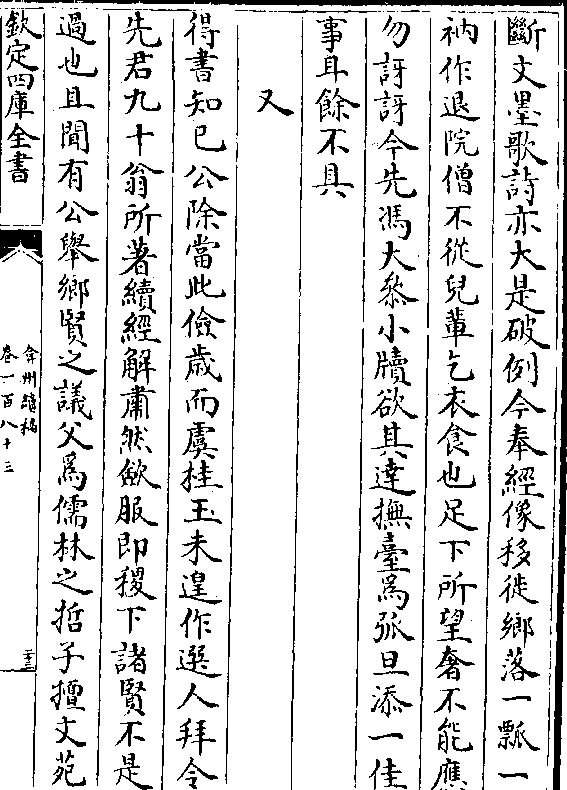 斷文墨歌詩亦大是破例今奉經像移徙鄉落一瓢一
衲作退院僧不從兒輩乞衣食也足下所望奢不能應
勿訝訝今先馮大黎小牘欲其達撫臺為弧旦添一佳
事耳餘不具
又
得書知已公除當此儉歲而虞桂玉未遑作選人拜令
先君九十翁所著續經解肅然斂服即稷下諸賢不是
過也且聞有公舉鄉賢之議父為儒林之哲子擅文苑
欽定四庫全書
弇州續稿
卷一百八十三